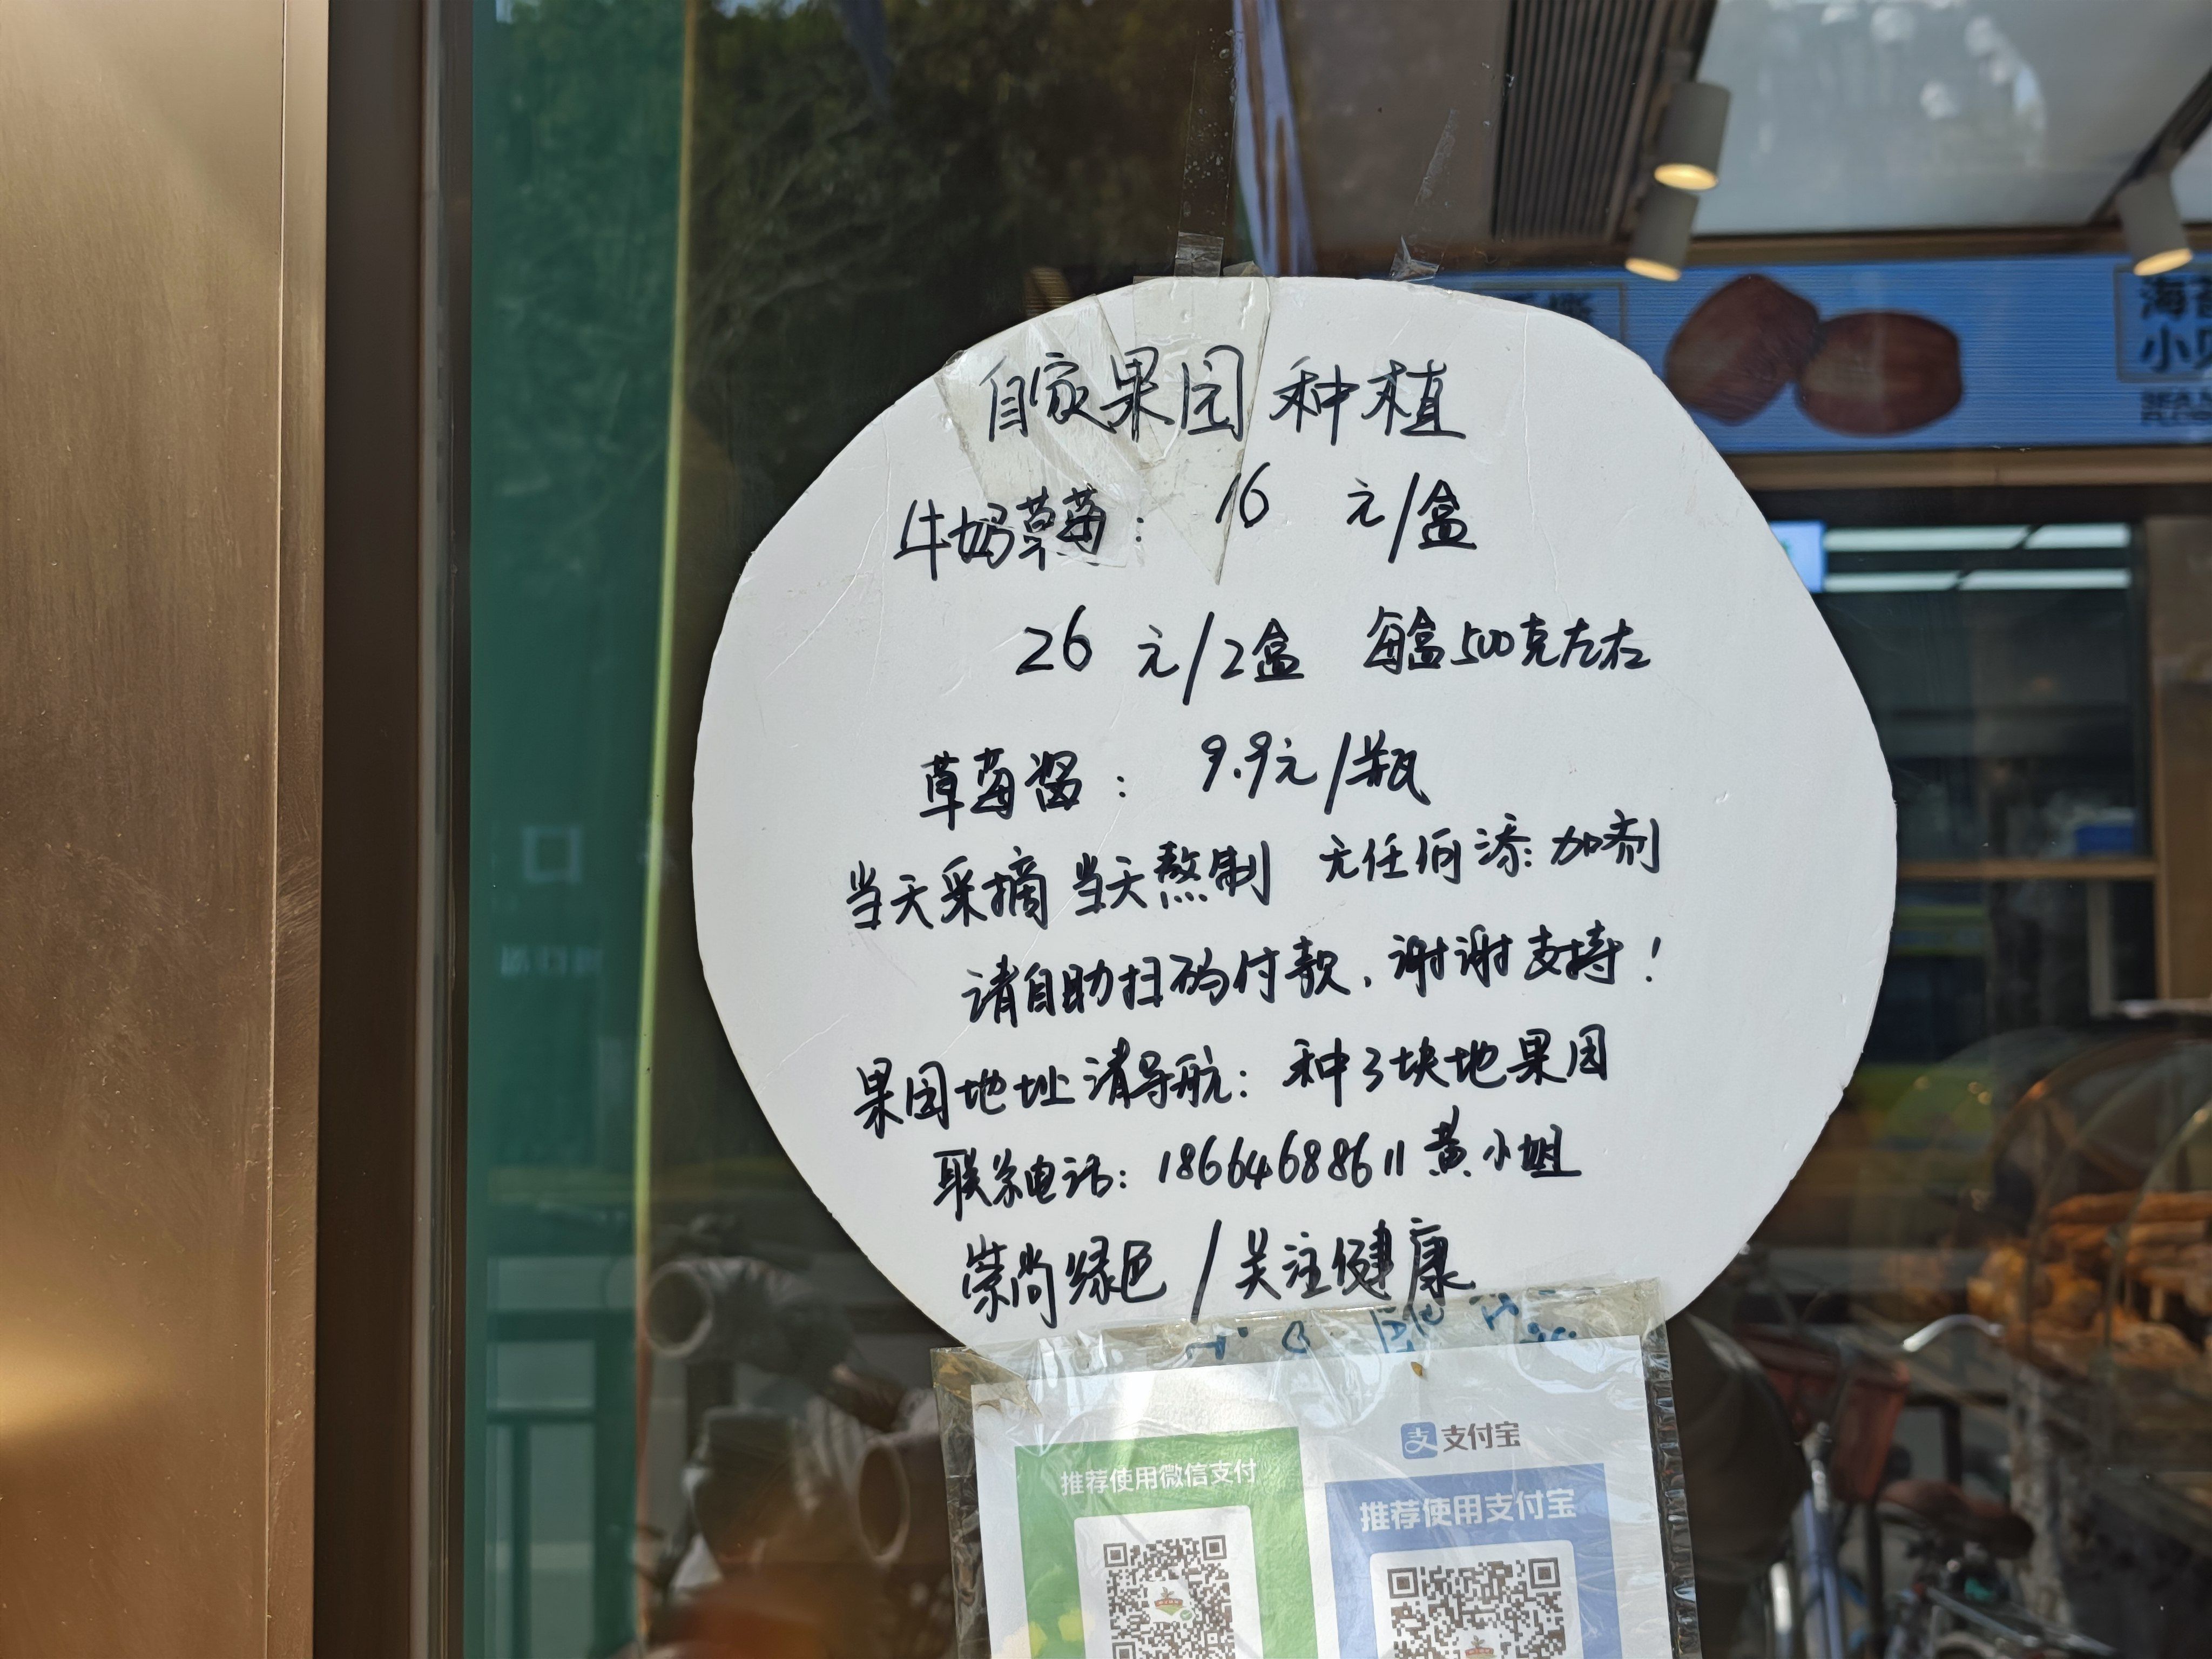 自家果园种植
牛奶草莓：16 元/盒
26 元/2盒 每盒500克左右
草莓酱：9.9元/瓶
当天采摘 当天熬制 无任何添加剂
请自助扫码付款，谢谢支持！
果园地址请导航：种了块地果园
联系电话：18664688611 黄小姐
崇尚绿色/关注健康
支付宝
推荐使用微信支付
推荐使用支付宝
海苔
小贝